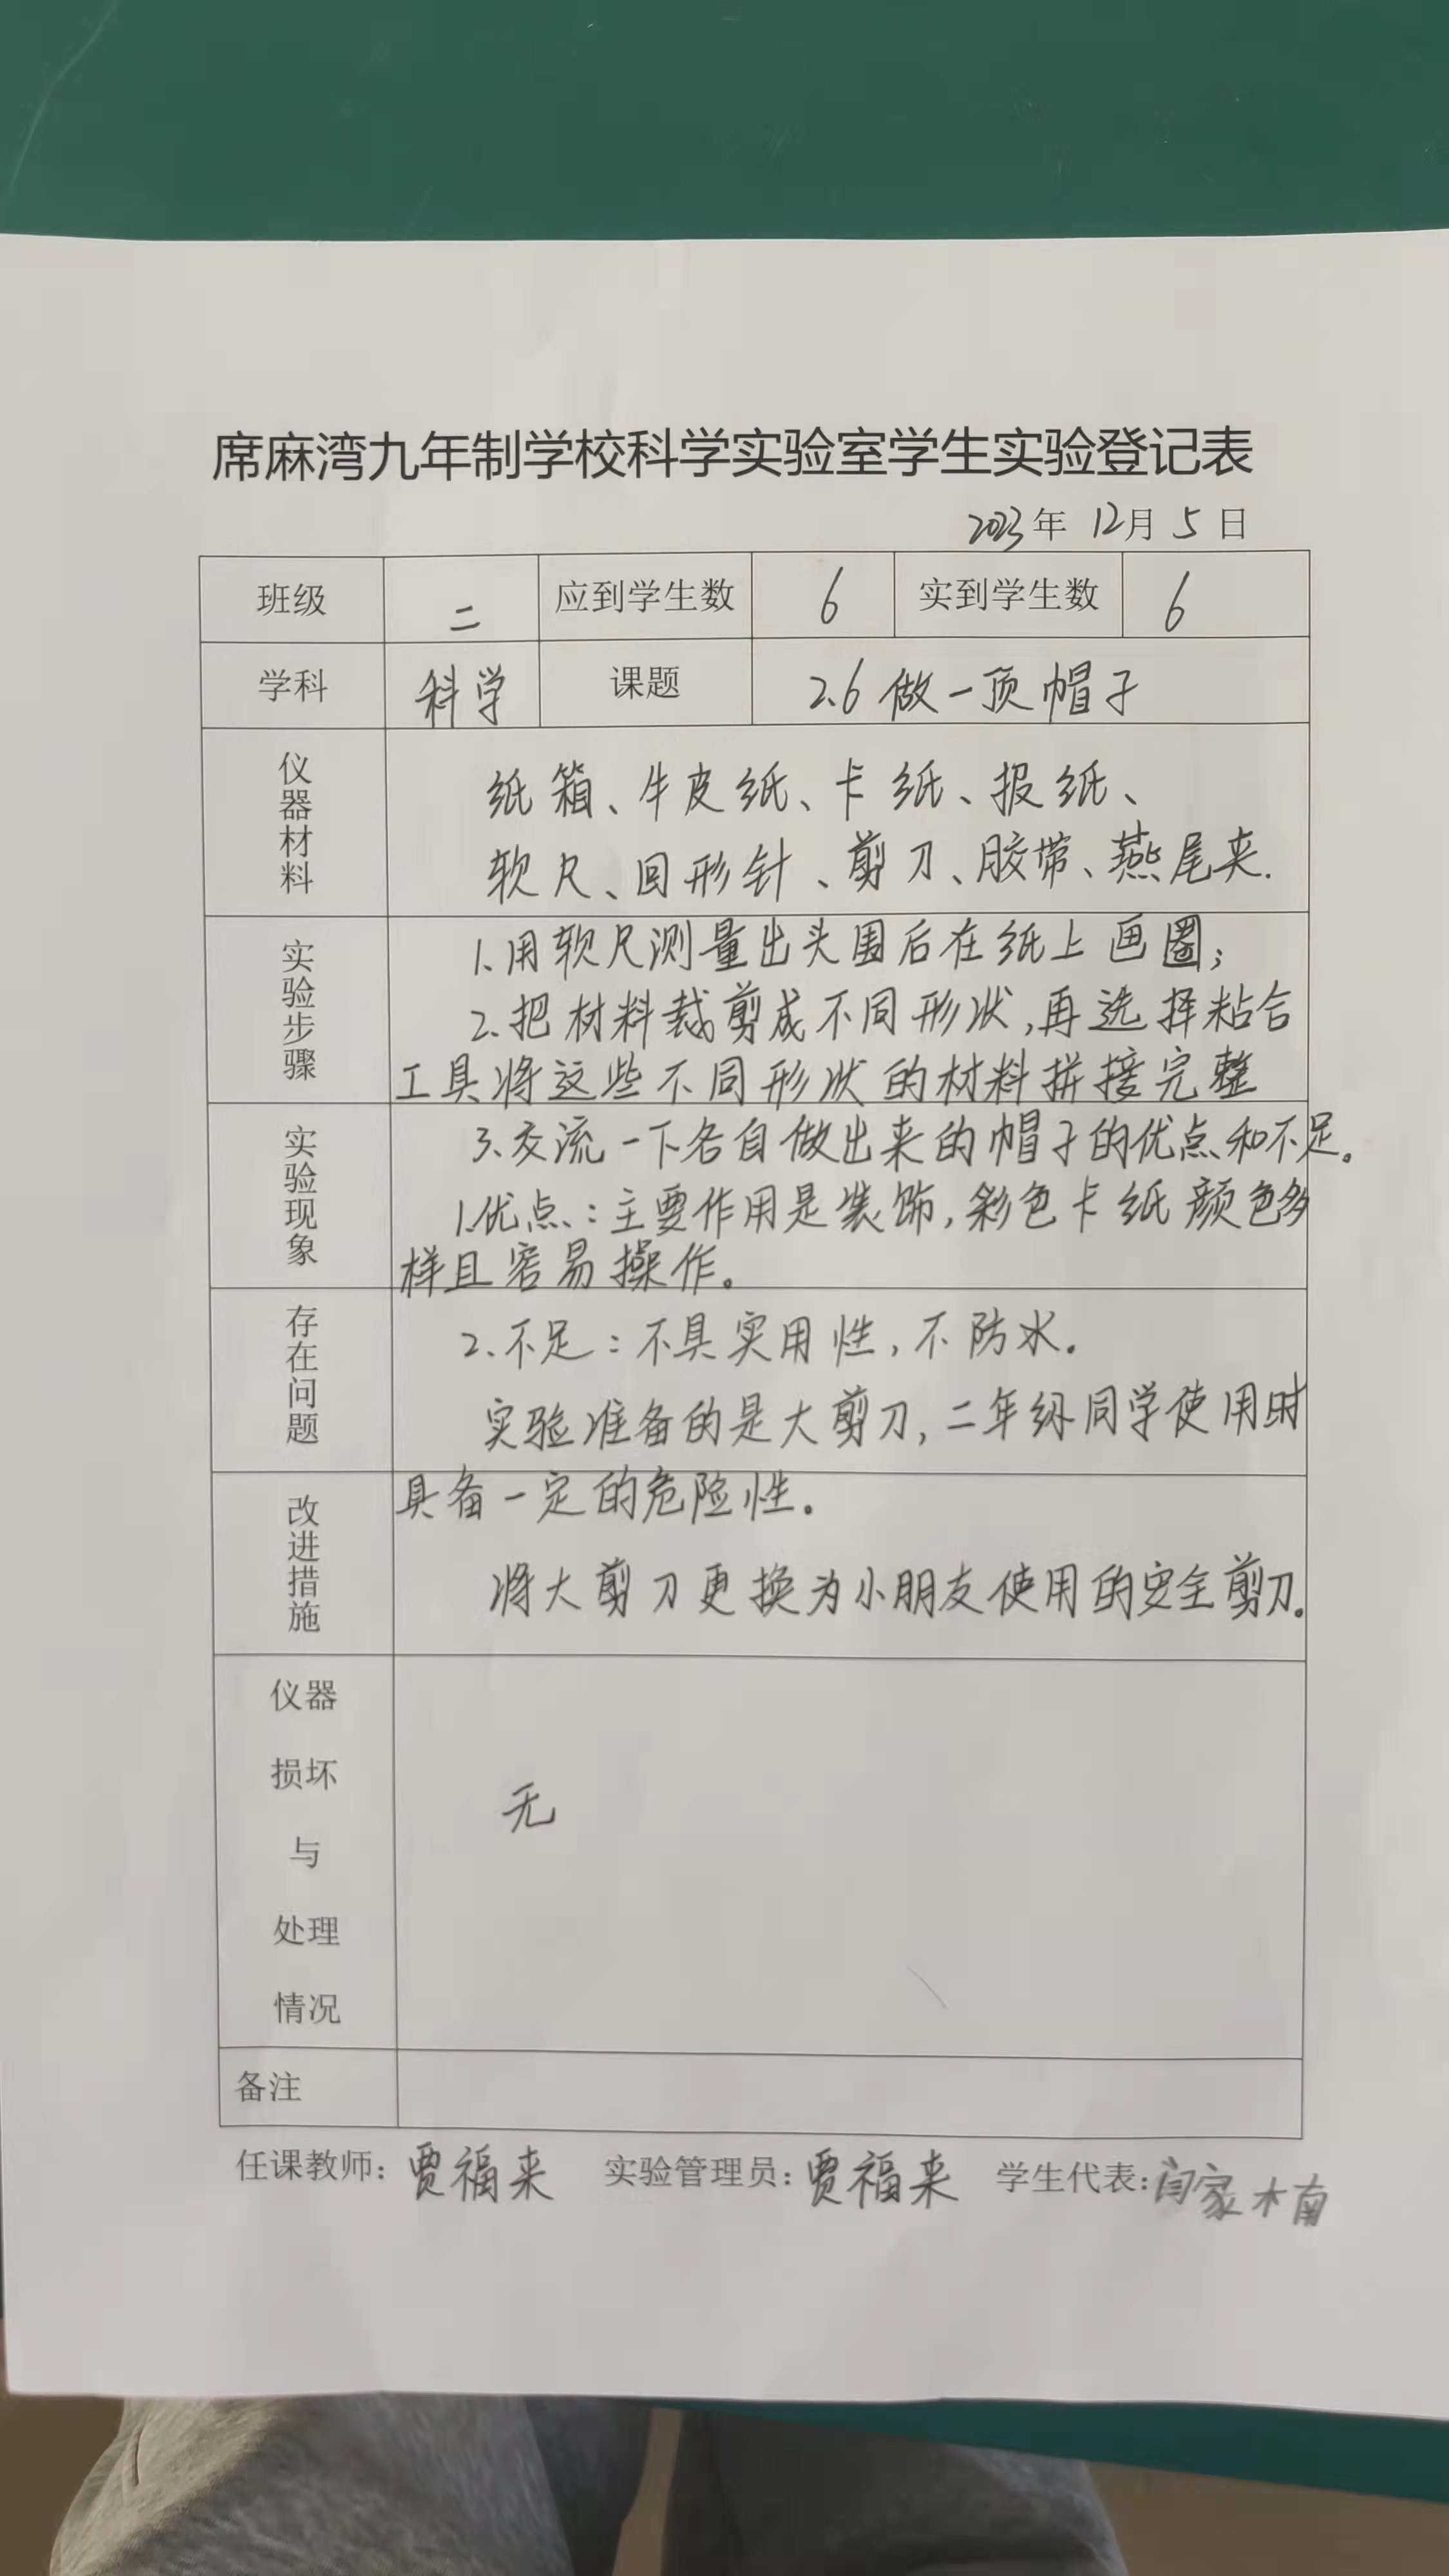 席麻湾九年制学校科学实验室学生实验登记表
2023年 12月 5日
班级 二 应到学生数 6 实到学生数 6
学科 科学 课题 2.6 做一顶帽子
仪器材料
纸箱、牛皮纸、卡纸、报纸、
软尺、回形针、剪刀、胶带、燕尾夹.
实验步骤
1.用软尺测量出头围后在纸上画圈;
2.把材料裁剪成不同形状,再选择粘合
工具将这些不同形状的材料拼接完整
实验现象
3.交流一下各自做出来的帽子的优点和不足。
1.优点:主要作用是装饰,彩色卡纸颜色多
样且容易操作。
存在问题
2.不足:不具实用性,不防水。
实验准备的是大剪刀,二年级同学使用时
改进措施
具备一定的危险性。
将大剪刀更换为小朋友使用的安全剪刀。
仪器
损坏
与
处理
情况
无
备注
任课教师:贾福来 实验管理员:贾福来 学生代表:闫家木南